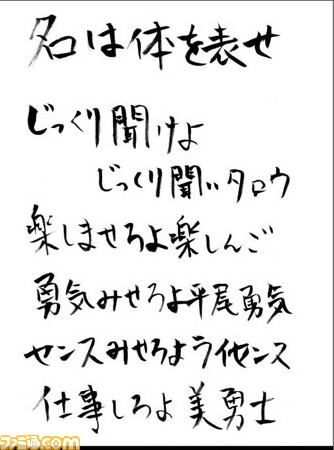 名は体を表せ
じっくり聞けよ
じっくり聞いタロウ
楽しませろよ楽しんご
勇気みせろよ平尾勇気
センスみせろよライセンス
仕事しろよ美勇士
ファミ通.com